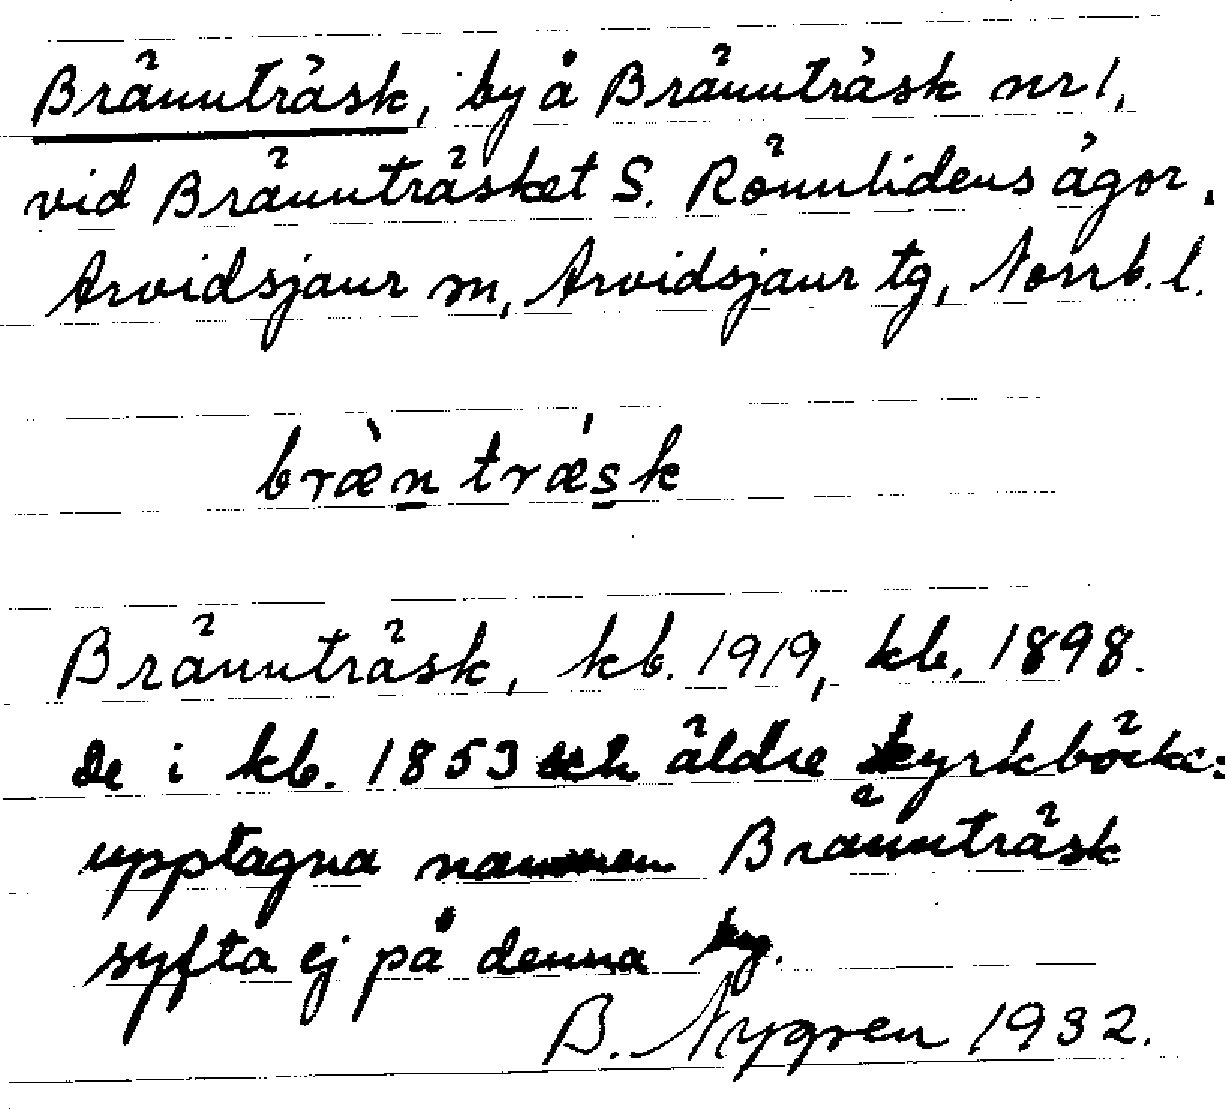 Brännträsk, by å Brännträsk nr 1,
vid Brännträsket S. Rönnlidens ägor,
Arvidsjaur sn, Arvidsjaur tg, Norrb. l.
bræ̀n trǽsk
Brännträsk, kb. 1919, kb. 1898.
De i kb. 1853 och äldre kyrkböcker
upptagna namnen Brännträsk
syfta ej på denna by.
B. Nygren 1932.